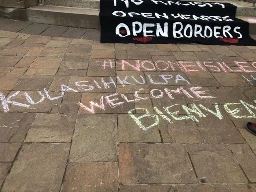 NO RACISM
OPEN HEARTS
OPEN BORDERS
#NOONEISILEG
KULASIHKULPA
WELCOME
BIENVEN